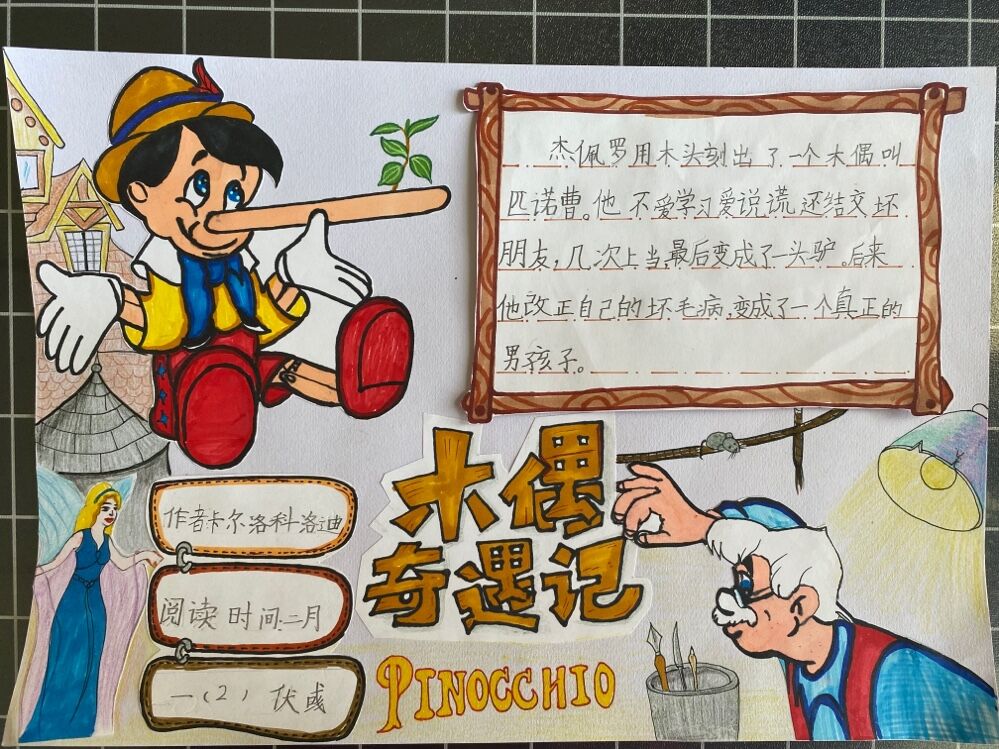 杰佩罗用木头刻出了一个木偶叫
匹诺曹。他不爱学习爱说谎还结交坏
朋友,几次上当,最后变成了一头驴。后来
他改正自己的坏毛病,变成了一个真正的
男孩子。
木偶
奇遇记
作者卡尔洛科洛迪
阅读时间:二月
一(2) 伏彧
PINOCCHIO